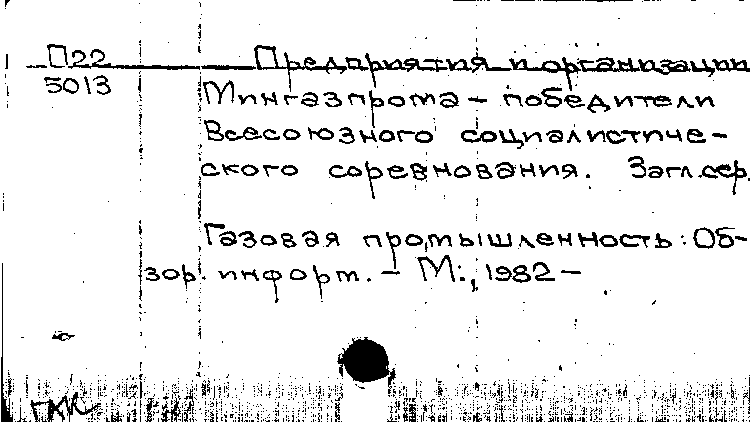 П22 Предприятия и организации
5013 Мингазпрома - победители
Всесоюзного социалистиче-
ского соревнования. Загл.сер.
Газовая промышленность: Об-
зор. информ. - М., 1982 -
ГАК